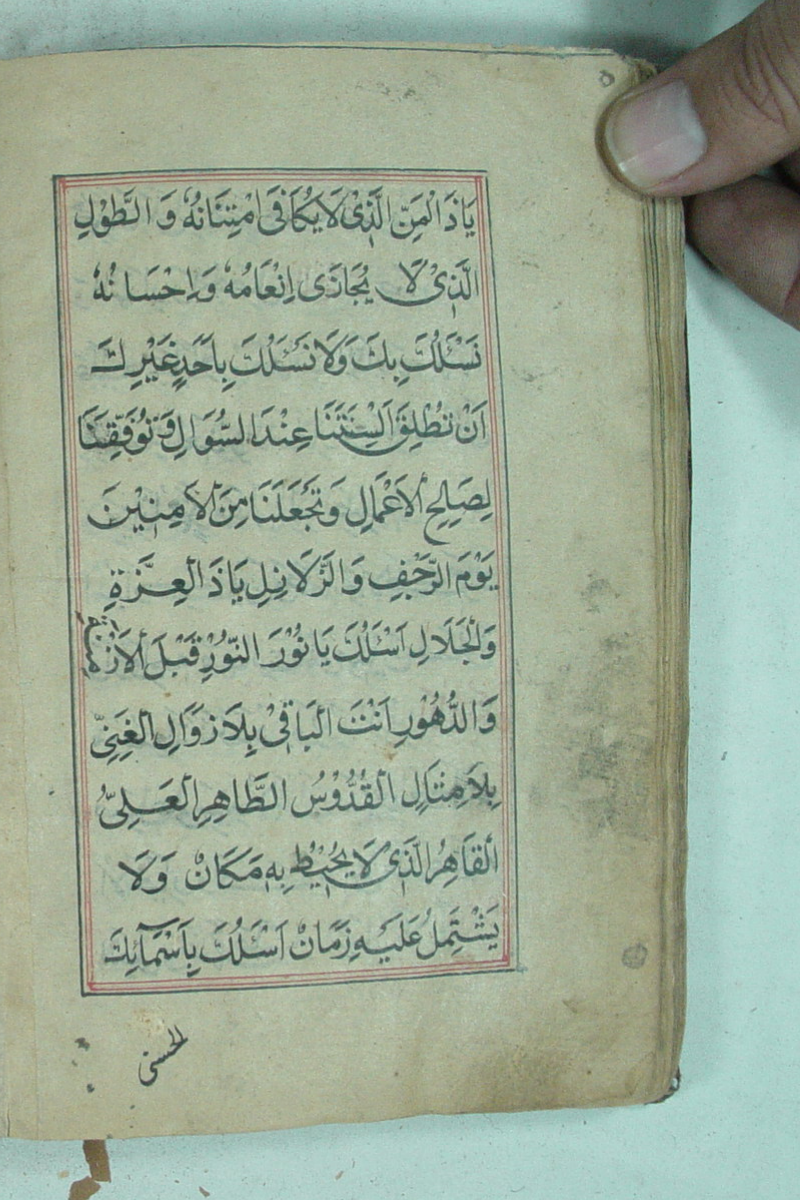 يَاذَ الْمَنِّ الَّذِىْ لَا يُكَافٰى امْتِنَانُهٗ وَ الطَّوْلِ
الَّذِىْ لَا يُجَازٰى اِنْعَامُهٗ وَاِحْسَانُهٗ
نَسْئَلُكَ بِكَ وَلَا نَسْئَلُكَ بِاَحَدٍ غَيْرِكَ
اَنْ تُطْلِقَ اَلْسِنَتَنَا عِنْدَ السُّوَالِ وَتُوَفِّقَنَا
لِصَلِحِ الْاَعْمَالِ وَتَجْعَلَنَا مِنَ الْاٰمِنِيْنَ
يَوْمَ الرَّجْفِ وَالزَّلَازِلِ يَاذَ الْعِزَّةِ
وَالْجَلَالِ اَسْئَلُكَ يَا نُوْرَ النُّوْرِ قَبْلَ الْاَزْمَانِ
وَالدُّهُوْرِ اَنْتَ الْبَاقِىْ بِلَا زَوَالِ الْغَنِىُّ
بِلَا مِثَالِ الْقُدُّوْسُ الطَّاهِرُ الْعَلِىُّ
الْقَاهِرُ الَّذِىْ لَا يُحِيْطُ بِهٖ مَكَانٌ وَلَا
يَشْتَمِلُ عَلَيْهِ زَمَانٌ اَسْئَلُكَ بِاَسْمَآئِكَ
الحسنى